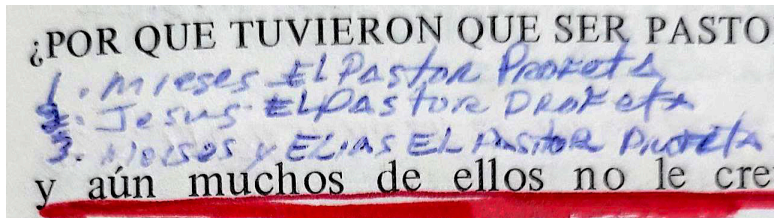 ¿POR QUE TUVIERON QUE SER PASTO
1. Mieses EL PASTOR Profeta
2. Jesus EL PASTOR Profeta
3. Moises y ELIAS EL PASTOR Profeta
y aún muchos de ellos no le cre